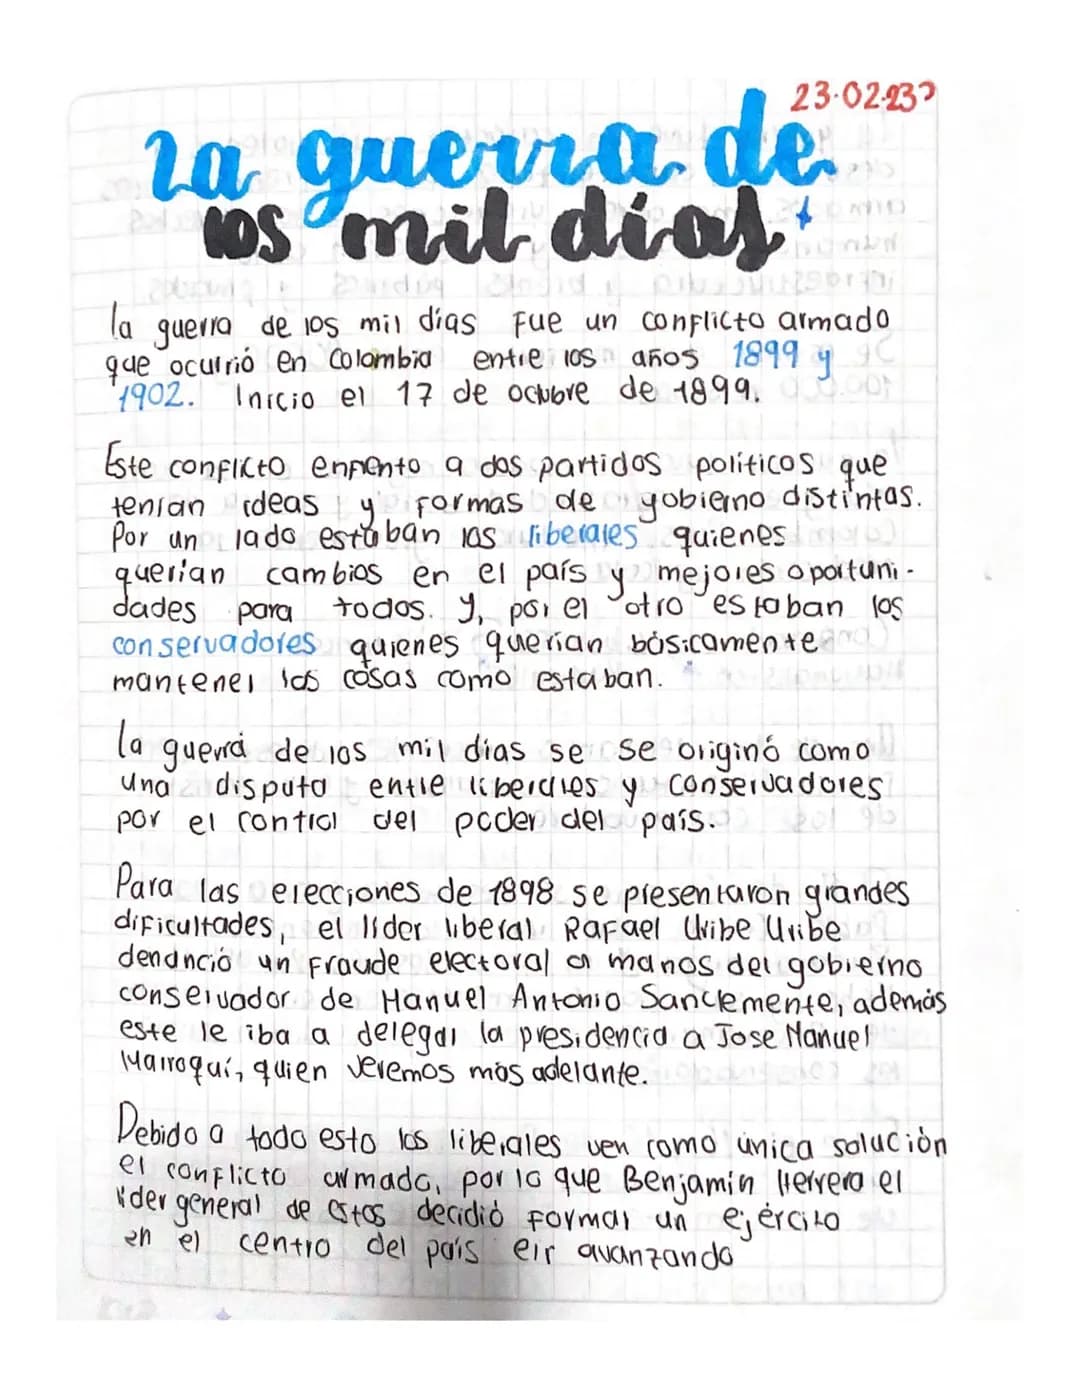 23.02.23
La guerra de
los mil días
la guerra de los mil días fue un conflicto armado
que ocurrió en Colombia entre los años 1899 y
1902. Inicio el 17 de octubre de 1899.
Este conflicto enfrento a dos partidos políticos que
tenían ideas y formas de gobierno distintas.
Por un lado estaban los liberales quienes
querían cambios en el país y mejores oportuni-
dades para todos. y, por el otro estaban los
conservadores quienes querían básicamente
mantener las cosas como estaban.
la guerra de los mil días se se originó como
una disputa entre liberales y conservadores
por el control del poder del país.
Para las elecciones de 1898 se presentaron grandes
dificultades, el líder liberal Rafael Uribe Uribe
denunció un fraude electoral a manos del gobierno
conservador de Manuel Antonio Sanclemente, además
este le iba a delegar la presidencia a Jose Manuel
Marroquí, quien veremos más adelante.
Debido a todo esto los liberales ven como única solución
el conflicto armado, por lo que Benjamin Herrera el
lider general de estos decidió formar un ejército
en el centro del país e ir avanzando